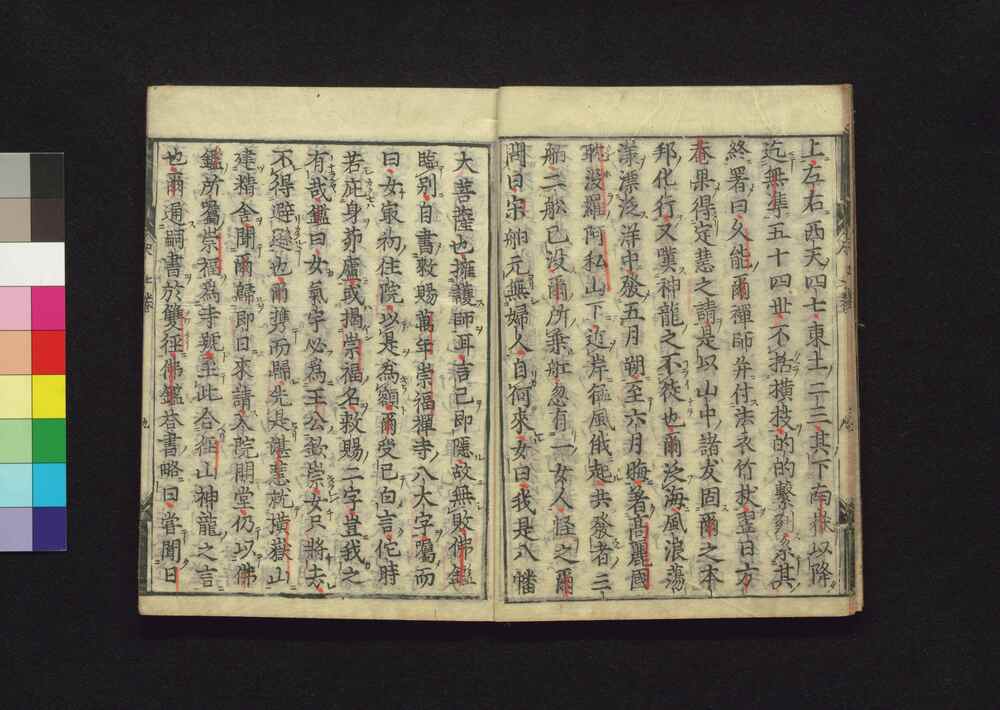 上左右西天四七東土二三其下南嶽以降
迄無準五十四世不括横枝的的繫列示其
終署曰久能爾禪師并付法衣竹杖歪日方
菴果得定慧之請是以山中諸友固爾之本
邦化行又嘆神龍之不徒也爾泛海風浪蕩
漾漂泛洋中發五月朔至六月晦著高麗國
耽没羅阿私山下近岸猛風俄起共發者三
船二舩已没爾所乗舩忽有一女人怪之爾
問曰宗舶元無婦人自何來女曰我是八幡
大菩薩也擁護師耳言已即隱故無敗佛鑑
臨别自書敕賜萬年崇福禪寺八大字囑而
曰女最初住院以是為額爾受已白言佗時
若庇身茆廬或揭崇福名敕賜二字豈我之
有哉鑑曰女氣宇必為王公欽崇女只將去
不得避遜也爾携而歸先是湛慧就横嶽山
建精舍聞爾歸即日來請入院開堂仍以佛
鑑所屬崇福為寺號至此合徑山神龍之言
也爾通嗣書於雙徑佛鑑答書略曰甞聞日